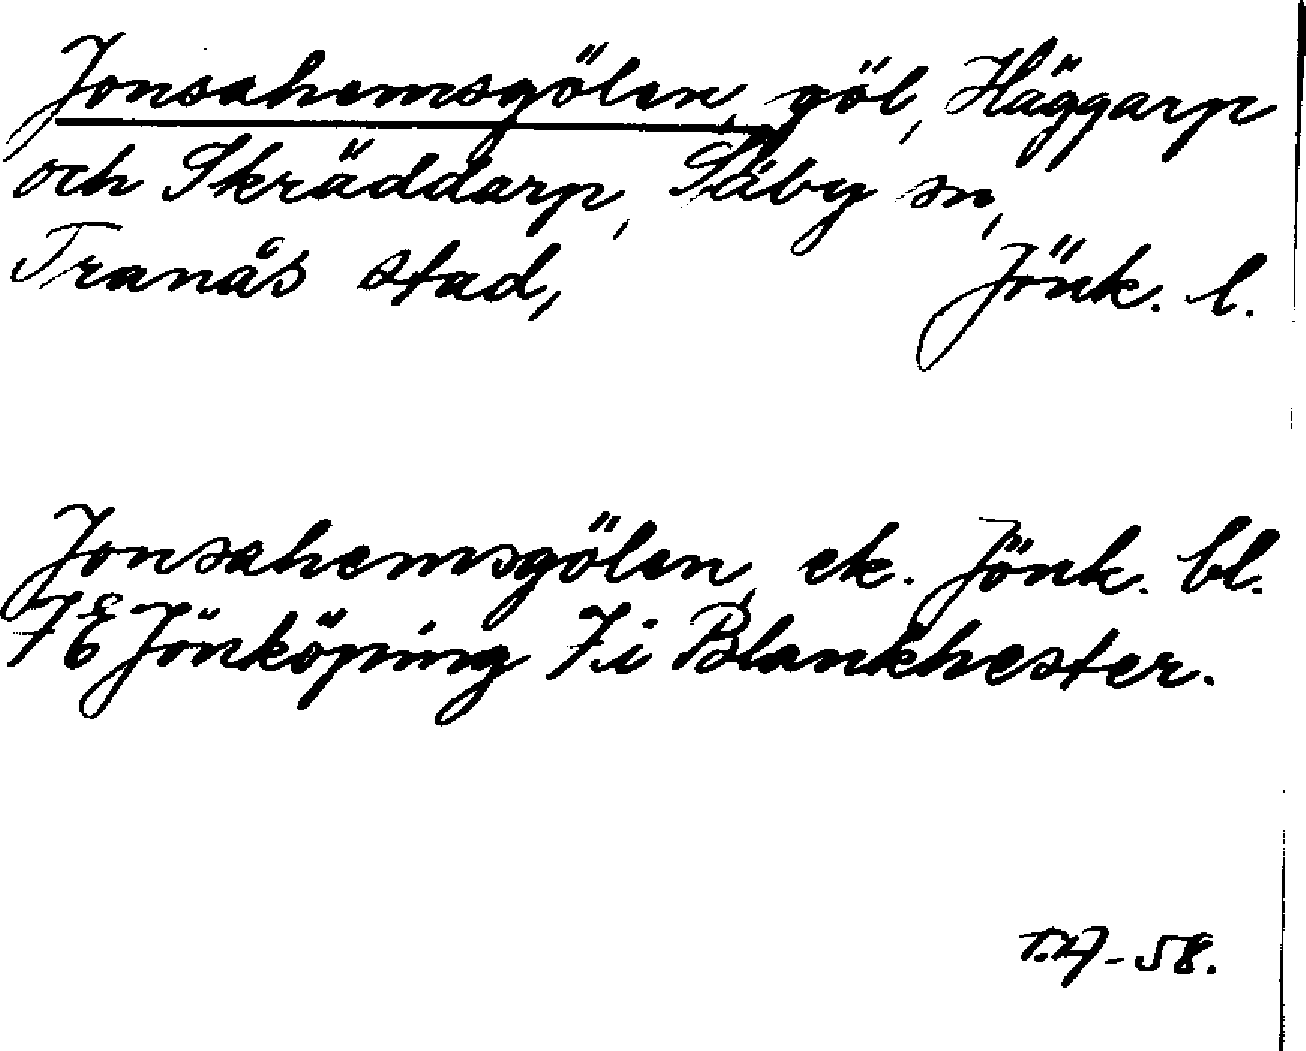 Jonsahemsgölen, göl, Häggarp
och Skräddarp, Säby sn,
Tranås stad, Jönk. l.
Jonsahemsgölen, ek. Jönk. bl.
7 E Jönköping 7. i Blankhester.
-58.